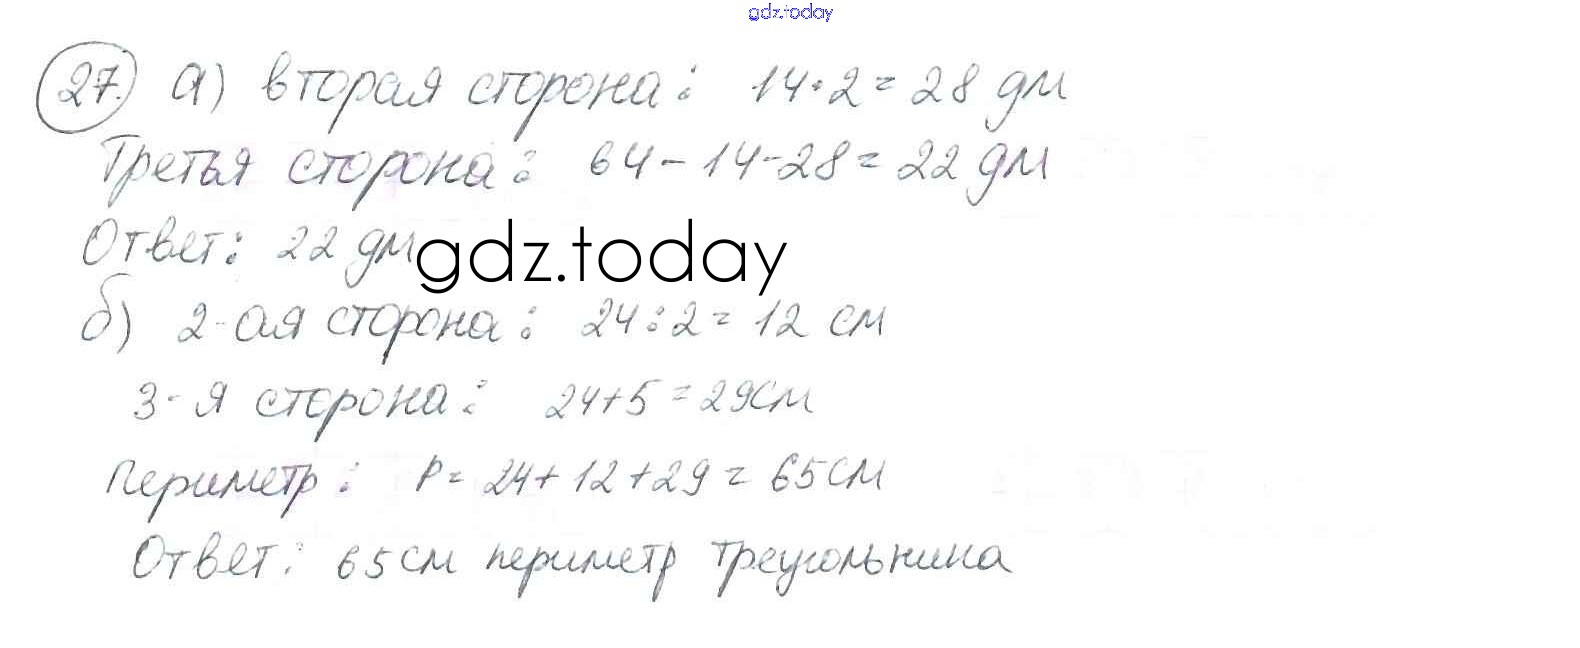 gdz.today
27. а) вторая сторона: 14·2=28 дм
Третья сторона: 64-14-28=22 дм
Ответ: 22 дм
gdz.today
б) 2-ая сторона: 24:2=12 см
3-я сторона: 24+5=29см
Периметр: P=24+12+29=65см
Ответ: 65см периметр треугольника